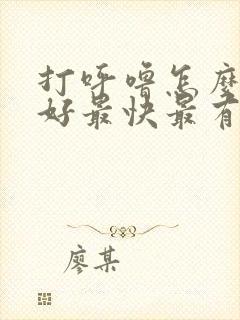 打呼噜怎么
好最快最有
廖某